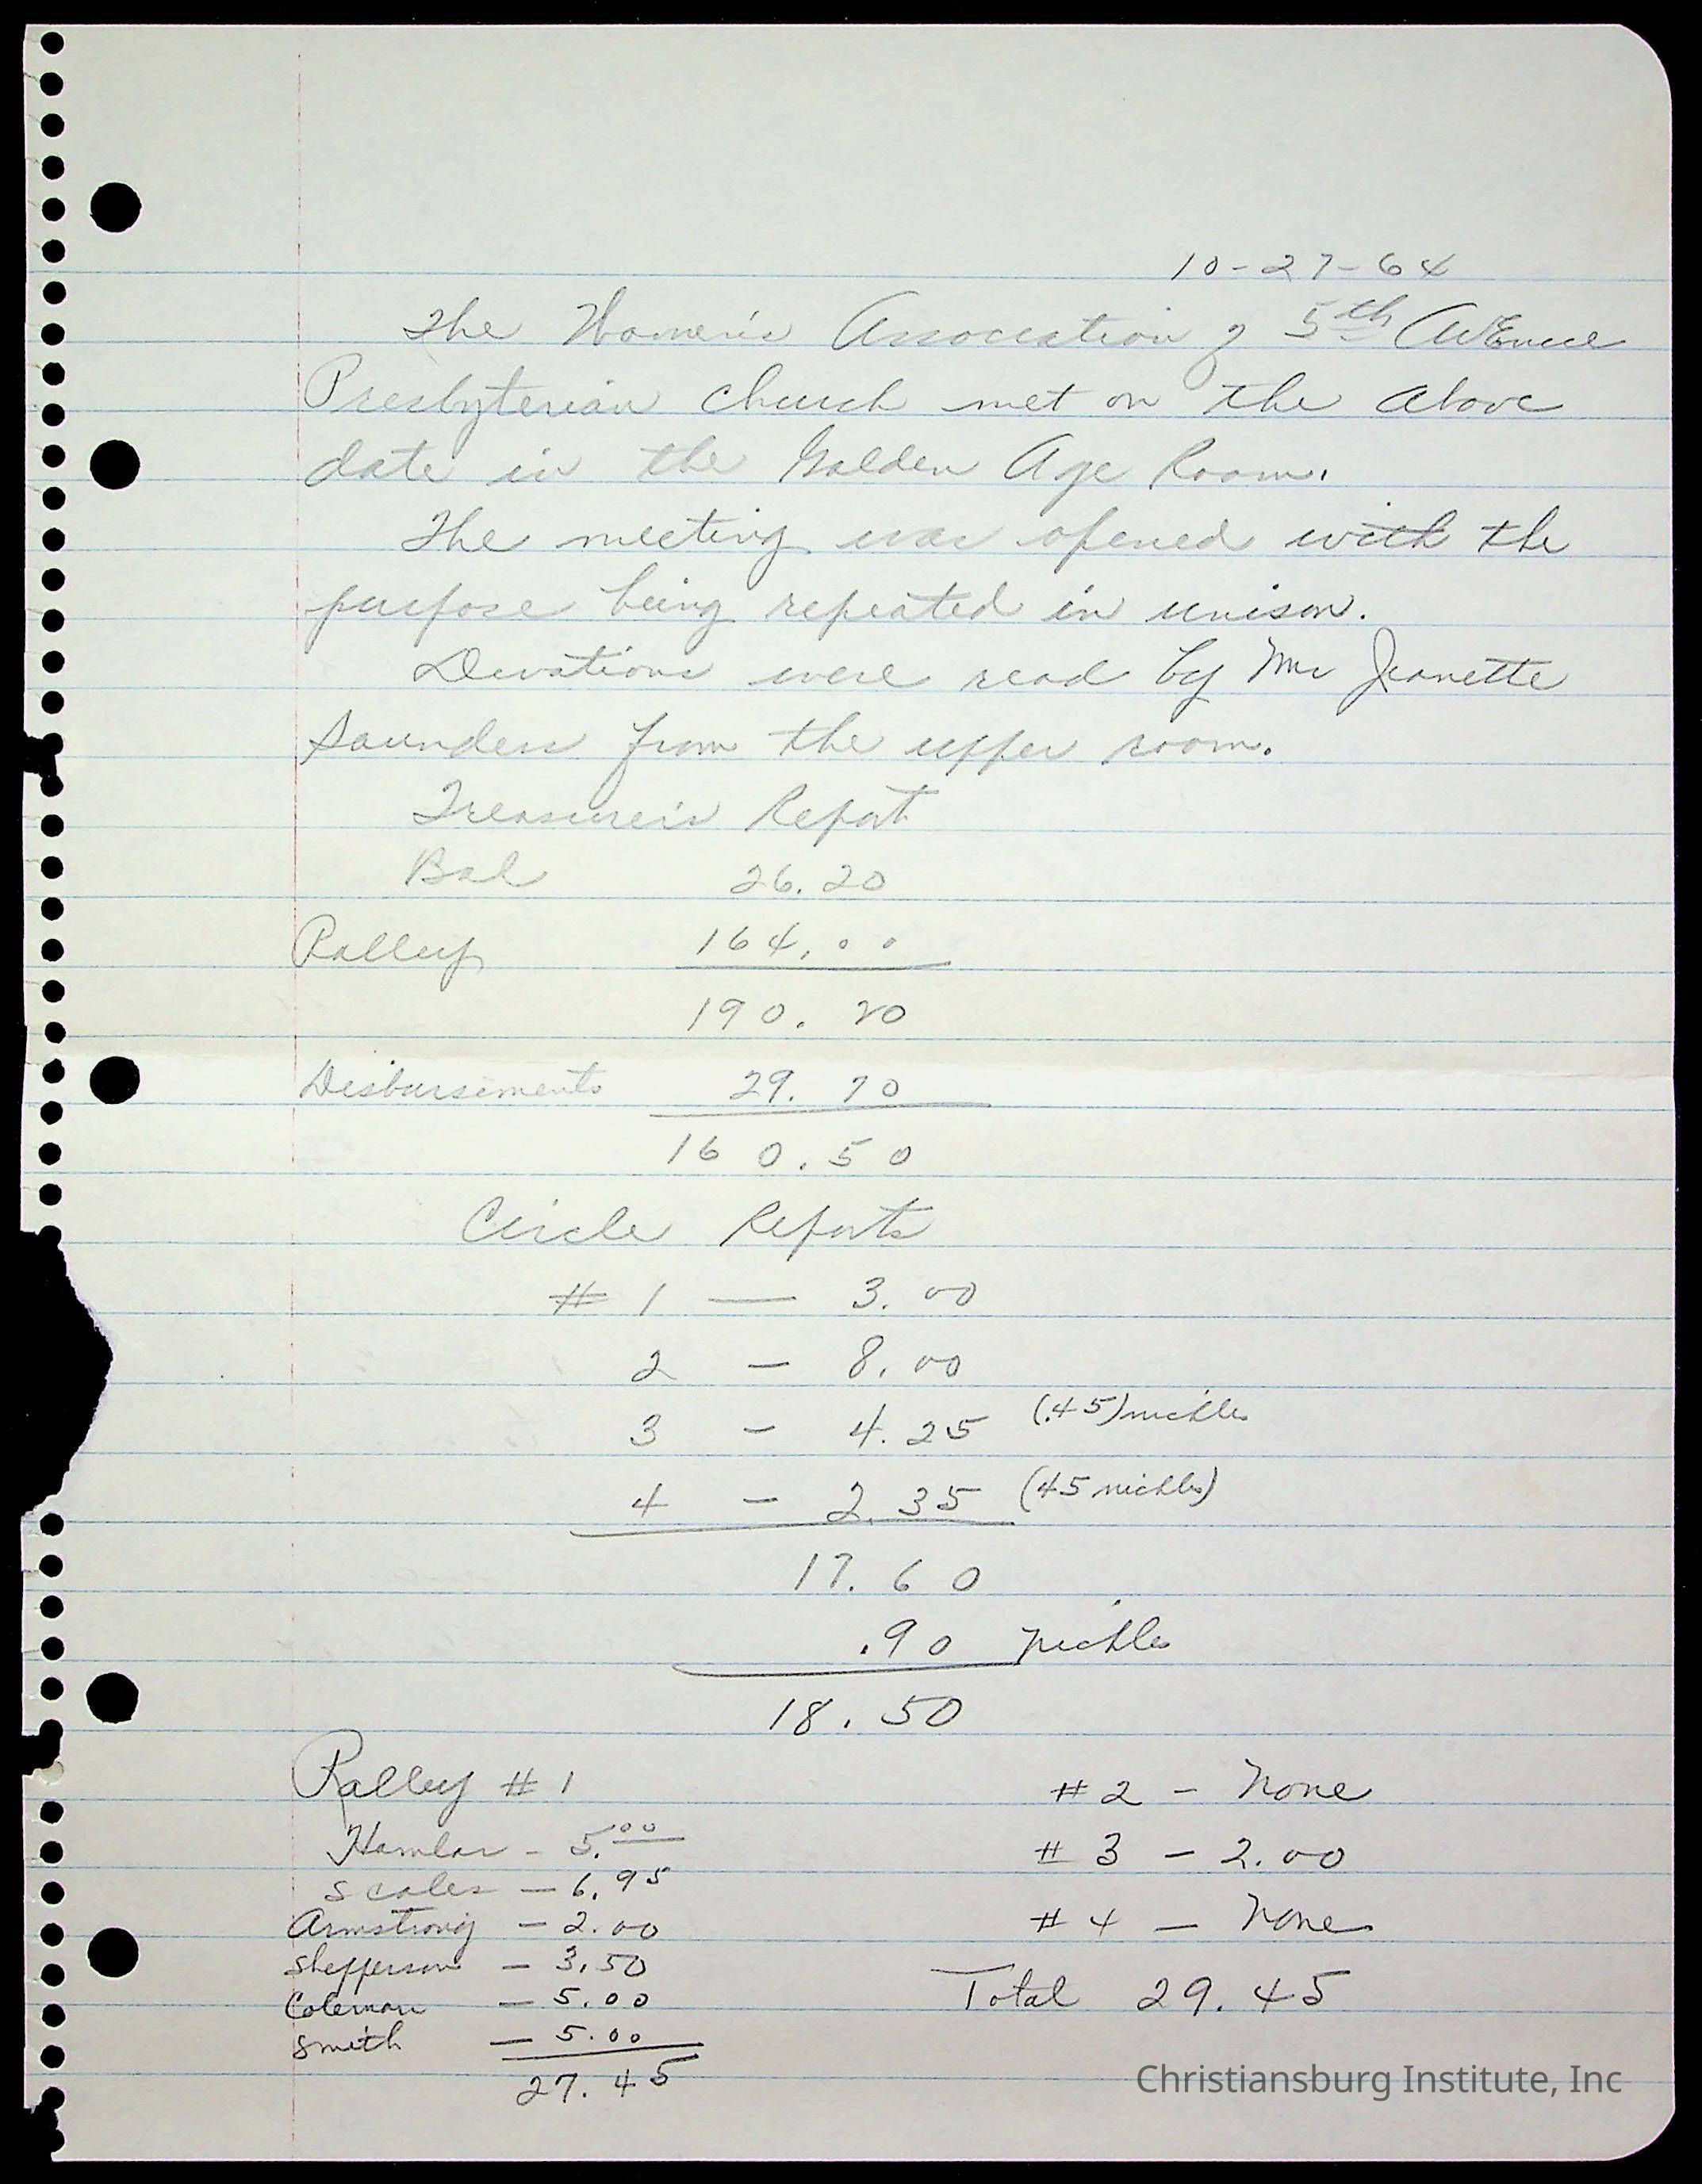 10-27-64
The Women's Association of 5th Avenue
Presbyterian Church met on the above
date in the Golden Age Room.
The meeting was opened with the
purpose being repeated in unison.
Devotions were read by Mrs Jeanette
Saunders from the upper room.
Treasurer's Report
Bal 26.20
Ralley 164.00
190.20
Disbursements 29.70
160.50
Circle Reports
# 1 — 3.00
2 — 8.00
3 - 4.25 (.45) nickles
4 - 2.35 (45 nickles)
17.60
.90 nickles
18.50
Ralley # 1
Hamlar - 5.00
Scales - 6.95
Armstrong - 2.00
Shepperson - 3.50
Coleman - 5.00
Smith - 5.00
27.45
# 2 - None
# 3 - 2.00
# 4 - None
Total 29.45
Christiansburg Institute, Inc